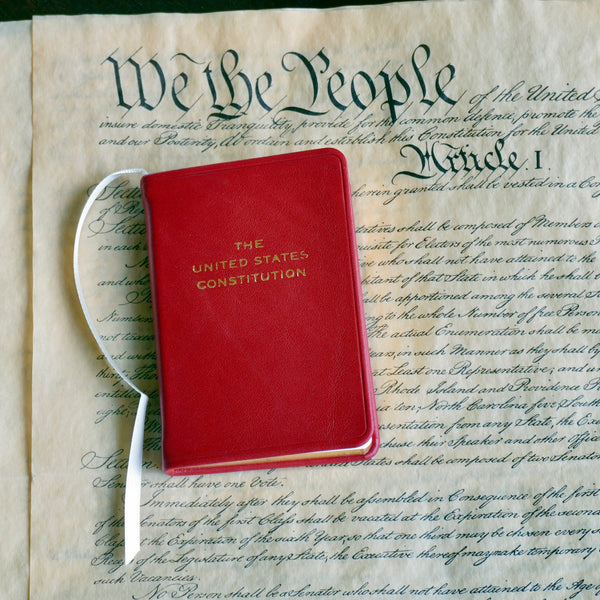 We the People of the United
insure domestic Tranquility, provide for the common defence, promote the
and our Posterity, do ordain and establish this Constitution for the United
Article. I.
THE
UNITED STATES
CONSTITUTION
herein granted shall be vested in a Con
of Rep
shall be composed of Members
in each
for Electors of the most numerous
who shall not have attained to the
and who
of that State in which he shall
be apportioned among the several
Number
to the whole Number of free Person
not taxed
The actual Enumeration shall be
and with
in such Manner as they shall by
thirty
at Least one Representative; and
entitled
Rhode Island and Providence
eight
North Carolina five, South
from any State, the
chuse their Speaker and other Office
shall be composed of two Senator
Senator shall have one Vote.
Immediately after they shall be assembled in Consequence of the first
of the Senators of the first Class shall be vacated at the Expiration of the second
Class at the Expiration of the sixth Year, so that one third may be chosen every
Recess of the Legislature of any State, the Executive thereof may make temporary
such Vacancies.
No Person shall be a Senator who shall not have attained to the Age